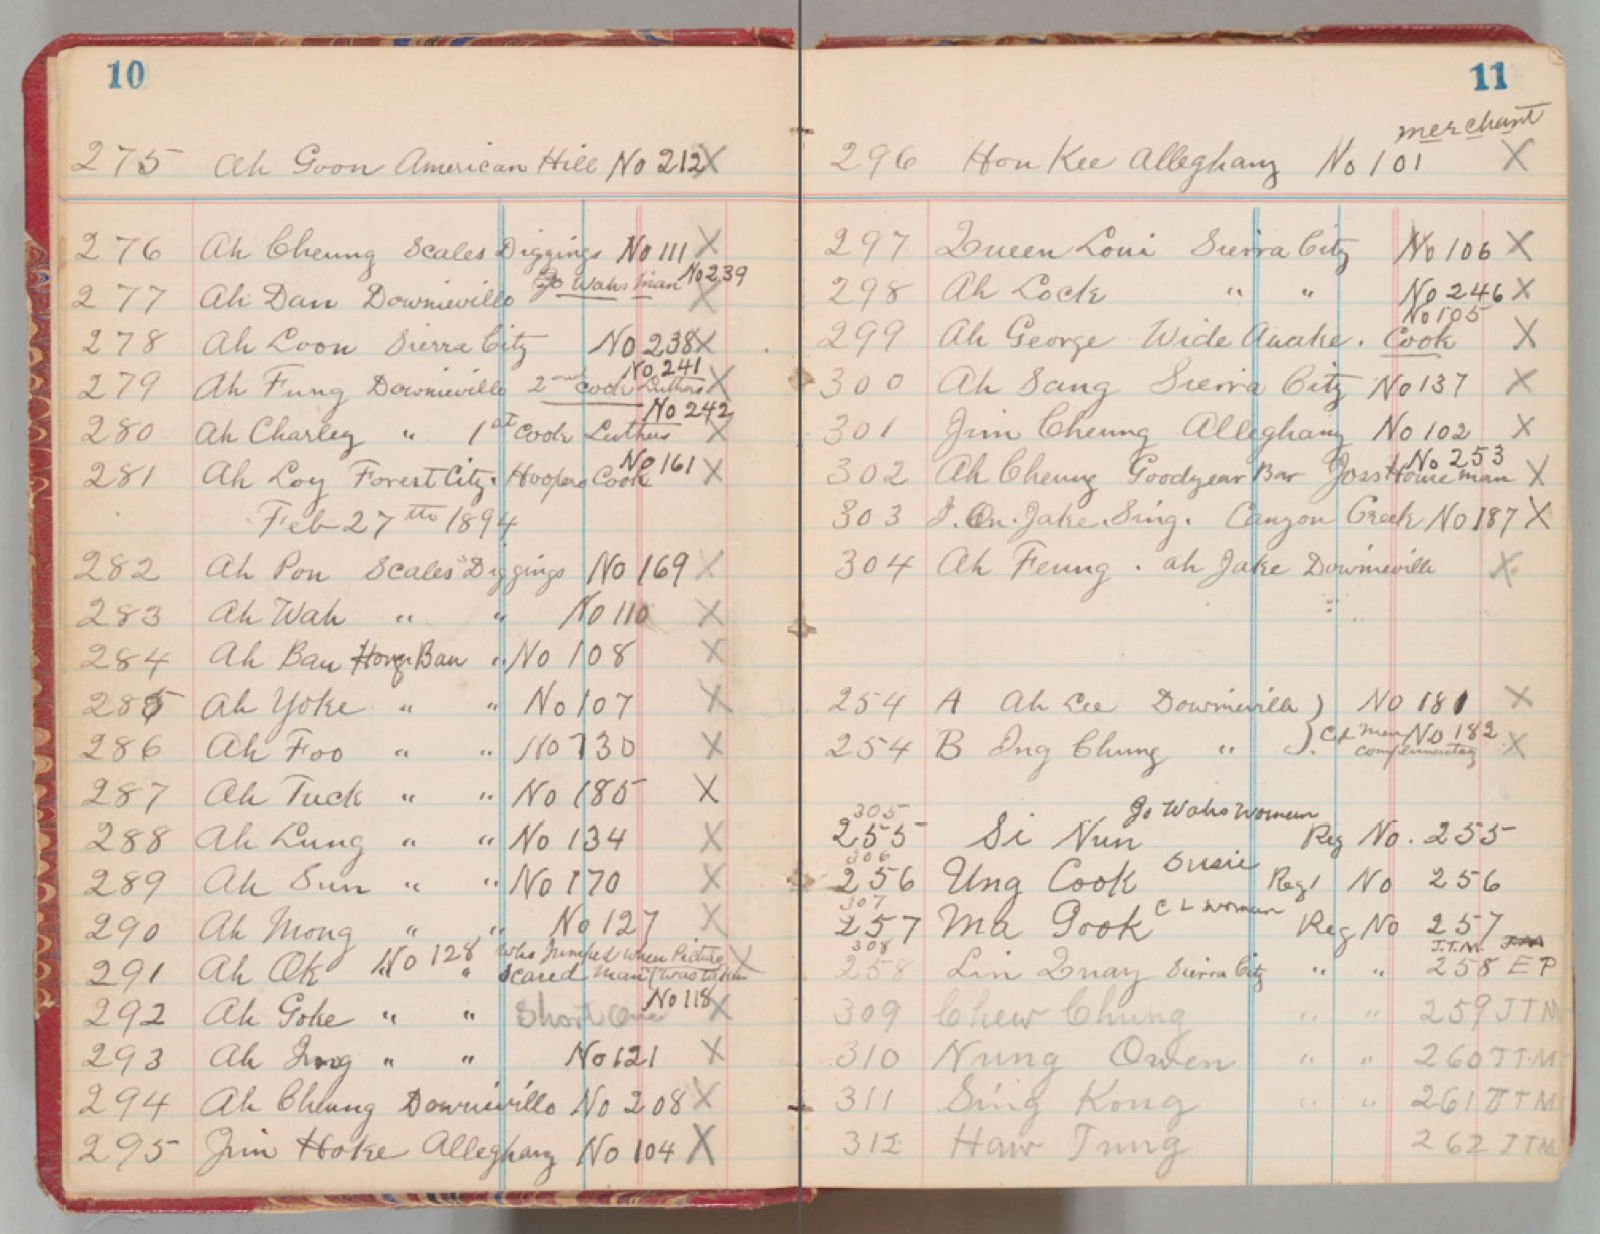 10
275 Ah Goon American Hill No 212 X
276 Ah Cheung Scales Diggings No 111 X
277 Ah Dan Downieville Jo Wahs man No 239 X
278 Ah Loon Sierra City No 238 X
279 Ah Fung Downieville 2nd Cook Luthers No 241 X
280 Ah Charley " 1st Cook Luthers No 242 X
281 Ah Loy Forest City. Hoopers Cook No 161 X
Feb 27th 1894
282 Ah Pon Scales Diggings No 169 X
283 Ah Wah " " No 110 X
284 Ah Bau Hong Bau " No 108 X
285 Ah Yoke " " No 107 X
286 Ah Foo " " No 130 X
287 Ah Tuck " " No 185 X
288 Ah Lung " " No 134 X
289 Ah Sun " " No 170 X
290 Ah Mong " " No 127 X
291 Ah Ok " " No 128 Scared man (who Jumped when Picture was taken X
292 Ah Goke " " Short One No 118 X
293 Ah Ing " " No 121 X
294 Ah Cheung Downieville No 208 X
295 Jim Hoke Alleghany No 104 X
11
merchant
296 Hon Kee Alleghany No 101 X
297 Queen Loui Sierra City No 106 X
298 Ah Lock " " No 246 X
299 Ah George Wide Awake. Cook No 105 X
300 Ah Sang Sierra City No 137 X
301 Jim Cheung Alleghany No 102 X
302 Ah Cheung Goodyear Bar Joss House man No 253 X
303 J. On. Jake. Sing. Canyon Creek No 187 X
304 Ah Feung. ah Jake Downieville X
254 A Ah Lee Downieville ) No 181 X
254 B Ing Chung " ). CL men No 182 complimentary X
305 Jo Wahs Woman
255 Si Nun Reg No. 255
306 Susie
256 Ung Cook Reg No 256
307 CL woman
257 Ma Gook Reg No 257
308 J.T.M. JM
258 Lin Quay Sierra City " " 258 EP
309 Chew Chung " " 259 JTM
310 Nung Owen " " 260 JTM
311 Sing Kong " " 261 JTM
312 Haw Tung 262 JTM